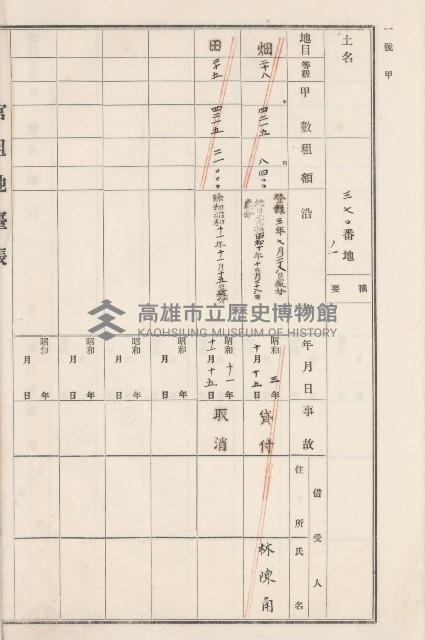 一號甲
土名
三七〇番地ノ一
摘要
地目
等級
甲數
租額
沿
年月日
事故
借受人
住所
氏名
畑
二十八
四二一五
八四〇〇
昭和三年十月十五日
貸付
林陳角
田
二十五
四二一五
二一〇〇〇
昭和十一年十二月十五日
取消
昭和年月日
昭和年月日
昭和年月日
昭和年月日
官租地臺帳
高雄市立歷史博物館
KAOHSIUNG MUSEUM OF HISTORY